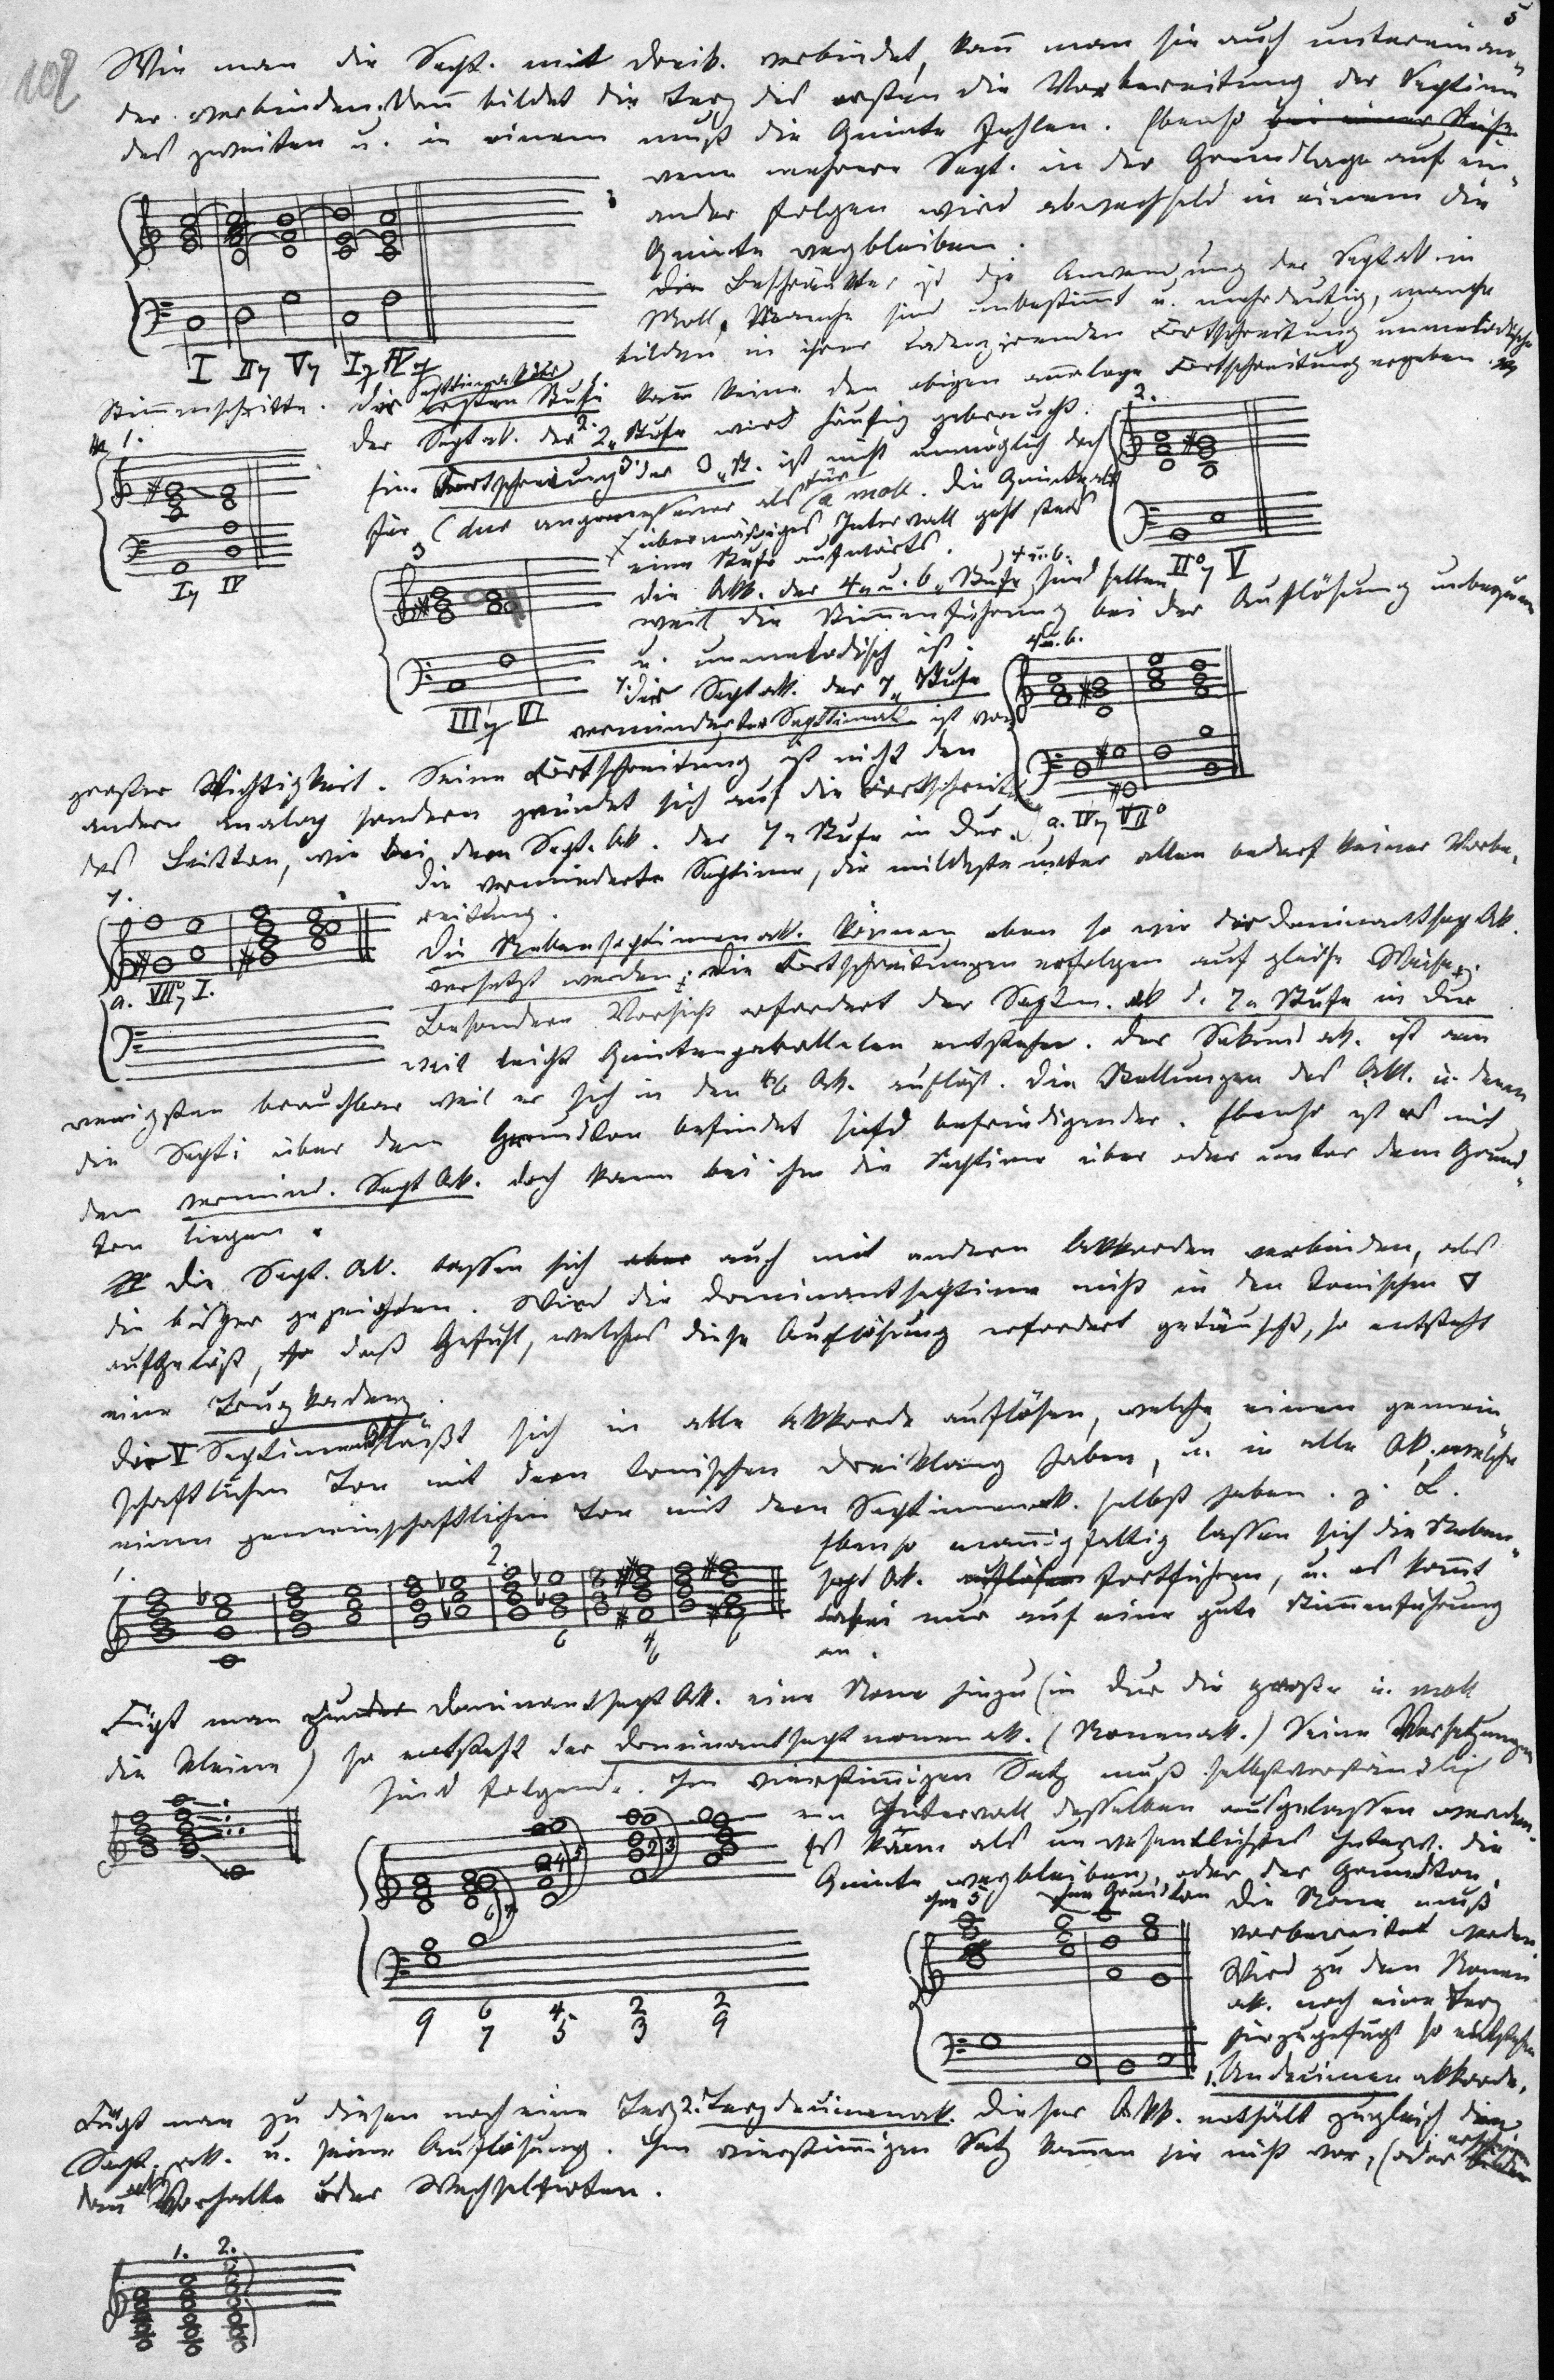 5
102
Wie man die Sept. mit Dreik. verbindet, kann man sie auch untereinan-
der verbinden. Dann bildet die Terz des ersten die Vorbereitung der Septime
des zweiten u. in einem muß die Quinte fehlen. Ebenso bei einer Reihe
wenn mehrere Sept. in der Grundlage auf ein-
ander folgen wird abwechselnd in einem die
Quinte wegbleiben.
I II7 V7 I7 IV7
Beschränkter ist die Anwendung der Septak. in
Moll. Manche sind unbestimmt u. mehrdeutig, manche
bilden in ihrer kadenzirenden Fortschreitung unmelodische
Stimmschritte. Der Septimenakkord der ersten Stufe 1. kann keine den obigen analoge Fortschreitung ergeben.
Der Septak. der 2. Stufe wird häufig gebraucht.
Eine Fortschreitung der 3. St. ist nicht unmöglich doch
für C dur angemessener als für a moll. Die Quinte als
übermäßiges Intervall geht stets
eine Stufe aufwärts.
1.
I7 IV
2.
II°7 V
3
III'7 VI
Die Akk. der 4. u. 6. Stufe sind selten
weil die Stimmenführung bei der Auflösung unbequem
u. unmelodisch ist.
4 u. 6.
a. IV7 VII°
7. Der Septak. der 7. Stufe
verminderter Septimenak. ist von
großer Wichtigkeit. Seine Fortschreitung ist nicht den
andern analog sondern gründet sich auf die Fortschreit.
des Leitton, wie bei dem Sept. Ak. der 7. Stufe in Dur.
Die verminderte Septime, die mildeste unter allen bedarf keiner Vorbe-
reitung.
7.
a. VII°7 I.
Die Nebenseptimenak. können eben so wie der Dominantsept Ak.
versetzt werden; die Fortschreitungen erfolgen auf gleiche Weise.
Besondere Vorsicht erfordert der Septim. ak d. 7. Stufe in Dur
weil leicht Quintenparallelen entstehen. Der Sekundak. ist am
wenigsten brauchbar weil er sich in den 4/6 Ak. auflöst. Die Stellungen des Akk. in denen
die Sept. über dem Grundton befindet sind befriedigender. Ebenso ist es mit
dem vermind. Sept Ak. doch kann bei ihm die Septime über oder unter dem Grund-
ton liegen.
Die Sept. Ak. lassen sich aber auch mit andern Akkorden verbinden, als
die bisher gezeigten. Wird die Dominantseptime nicht in den tonischen
aufgelöst, so daß Gefühl, welches diese Auflösung erfordert getäuscht, so entsteht
eine Trugkadenz.
Der V Septimenak. läßt sich in alle Akkorde auflösen, welche einen gemein-
schaftlichen Ton mit dem tonischen Dreiklang haben, u. in alle Ak., welche
einen gemeinschaftlichen Ton mit dem Septimenak. selbst haben. z. B.
1. 2.
6 4/6 6
Ebenso mannigfaltig lassen sich die Neben-
sept Ak. auflösen fortführen, u. es kommt
dabei nur auf eine gute Stimmenführung
an.
Fügt man zu der Dominantsept Ak. eine None hinzu (in Dur die große in moll
die kleine) so entsteht der Dominantseptnonenak. (Nonenak.) Seine Versetzungen
sind folgende. Im vierstimmigen Satz muß selbstverständlich
ein Intervall desselben ausgelassen werden.
Es kann als unwesentlichstes Interv. die
Quinte wegbleiben, oder der Grundton.
9 6/7 4/5 2/3 2/9
ohne 5 ohne Grundton
Die None muß
vorbereitet werden.
Wird zu dem Nonen
ak. noch eine Terz
hinzugefügt so entstehen
1. Undecimenakkorde.
Fügt man zu diesen noch eine Terz 2. Terzdecimenak. Dieser Akk. enthält zugleich den
Sept. ak. u. seine Auflösung. Im vierstimmigen Satz kommen sie nicht vor, (oder erscheinen
dann als Vorhalte oder Wechselnoten.
1. 2.